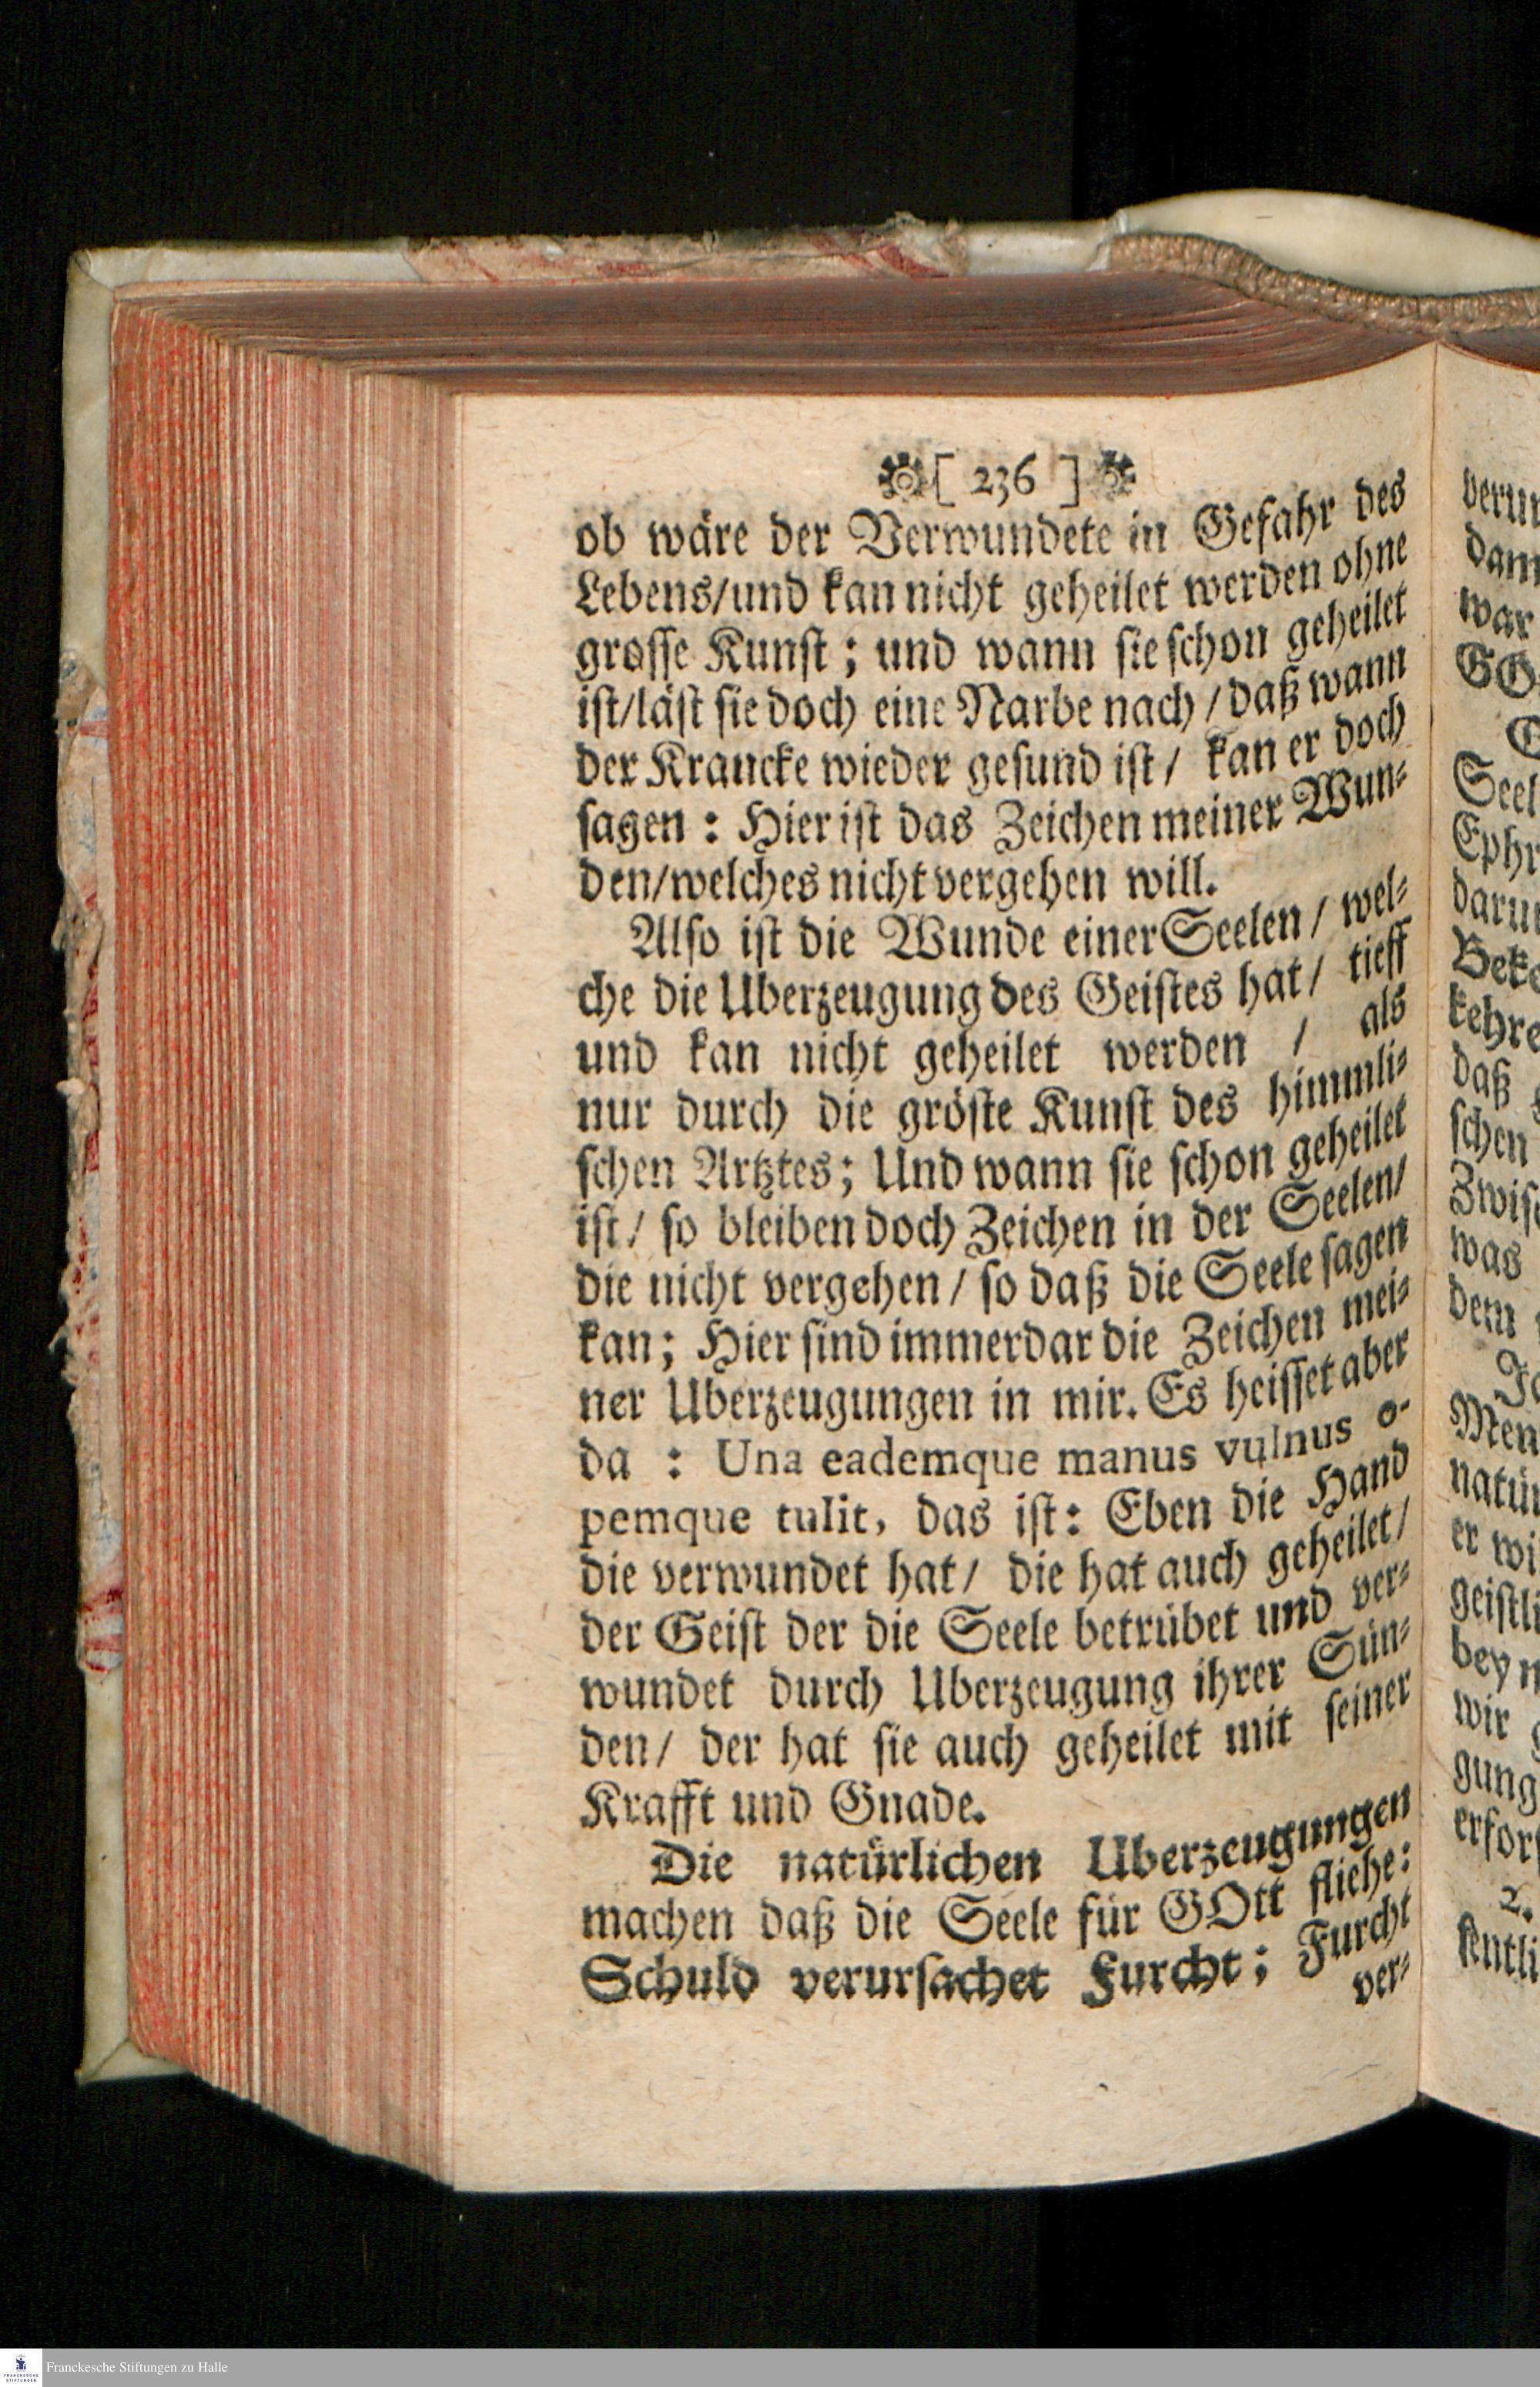 [ 236 ]
ob wäre der Verwundete in Gefahr des
Lebens/und kan nicht geheilet werden ohne
grosse Kunst; und wann sie schon geheilet
ist/läst sie doch eine Narbe nach/daß wann
der Krancke wieder gesund ist/ kan er doch
sagen: Hier ist das Zeichen meiner Wun-
den/welches nicht vergehen will.
Also ist die Wunde einer Seelen/ wel-
che die Uberzeugung des Geistes hat/ tieff
und kan nicht geheilet werden / als
nur durch die gröste Kunst des himmli-
schen Artztes; Und wann sie schon geheilet
ist/ so bleiben doch Zeichen in der Seelen/
die nicht vergehen/ so daß die Seele sagen
kan; Hier sind immerdar die Zeichen mei-
ner Uberzeugungen in mir. Es heisset aber
da : Una eademque manus vulnus o-
pemque tulit, das ist: Eben die Hand
die verwundet hat/ die hat auch geheilet/
der Geist der die Seele betrübet und ver-
wundet durch Uberzeugung ihrer Sün-
den/ der hat sie auch geheilet mit seiner
Krafft und Gnade.
Die natürlichen Uberzeugungen
machen daß die Seele für GOtt fliehe:
Schuld verursachet Furcht; Furcht
ver-
verun
dann
war
GO
Seel
Ephr
daru
Beke
kehre
daß
schen
Zwisc
was
dem
Men
natür
er wi
geistli
bey
wir
gung
erfors
2.
kentli
Franckesche Stiftungen zu Halle